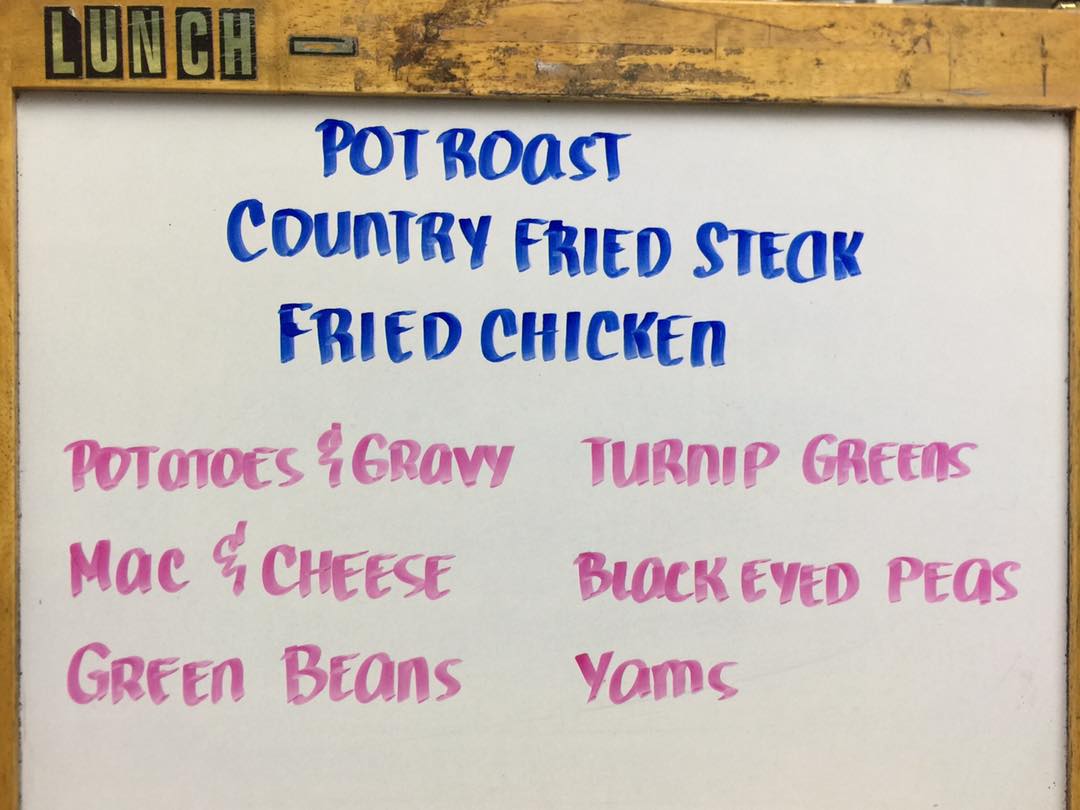 LUNCH -
POT ROAST
COUNTRY FRIED STEAK
FRIED CHICKEN
POTATOES & GRAVY
MAC & CHEESE
GREEN BEANS
TURNIP GREENS
BLACK EYED PEAS
YAMS